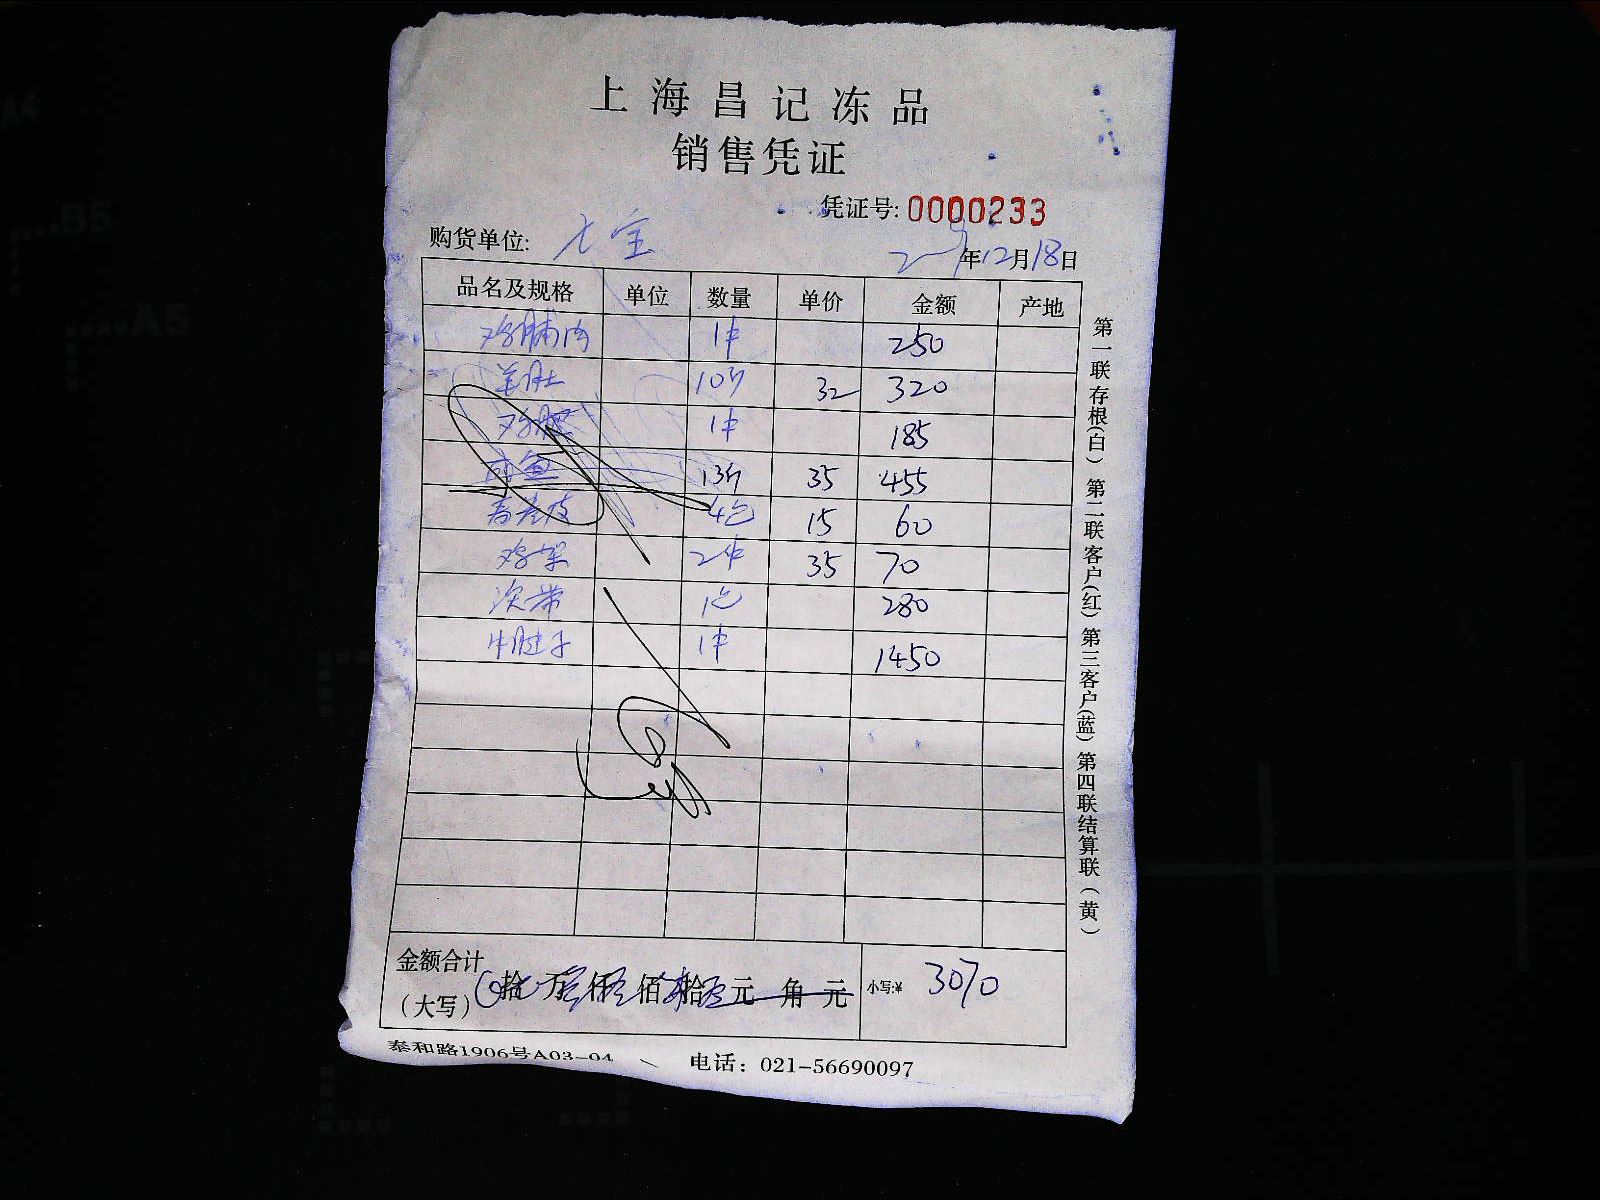 上海昌记冻品
销售凭证
凭证号: 0000233
购货单位: 七宝
年12月18日
品名及规格 单位 数量 单价 金额 产地
鸡脯肉 1件 250
羊肚 10斤 32 320
1件 185
13斤 35 455
4包 15 60
鸡架 2件 35 70
1包 280
牛腱子 1件 1450
金额合计
(大写) 拾 万 仟 佰 拾 元 角 元 小写:¥ 3070
泰和路1906号A03-04 电话：021-56690097
第一联存根(白) 第二联客户(红) 第三客户(蓝) 第四联结算联(黄)